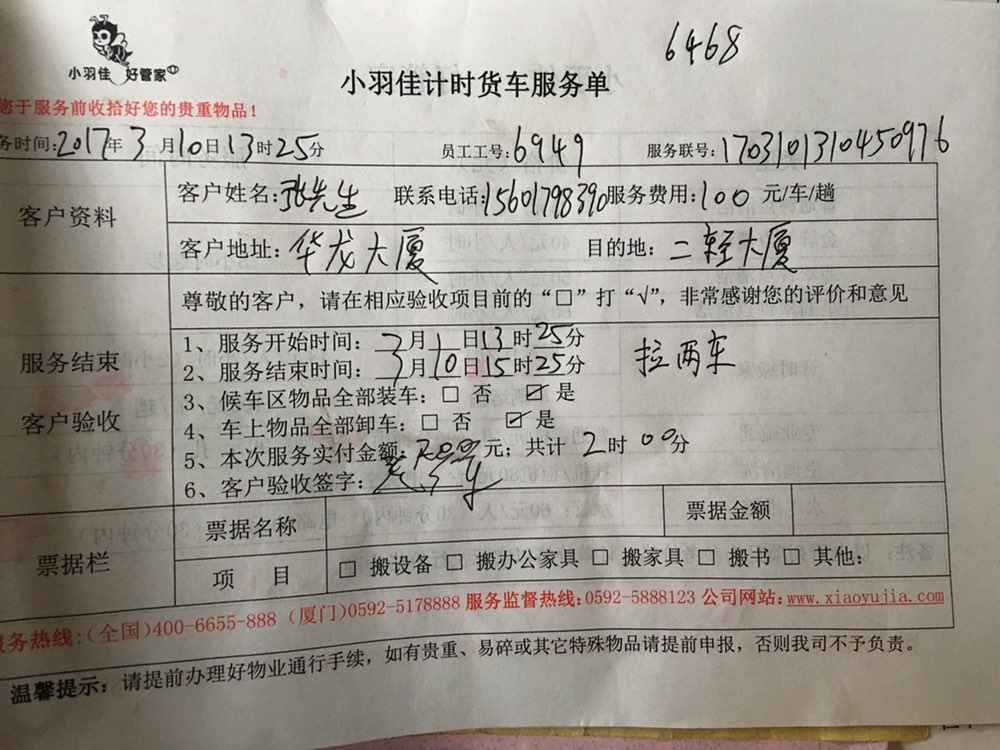 6468
小羽佳 好管家
小羽佳计时货车服务单
您于服务前收拾好您的贵重物品！
务时间:2017年3月10日13时25分 员工工号:6949 服务联号:1703101310450976
客户资料
客户姓名:张先生 联系电话:15601798390 服务费用:100 元/车/趟
客户地址:华龙大厦 目的地:二轻大厦
服务结束
客户验收
尊敬的客户，请在相应验收项目前的“□”打“√”，非常感谢您的评价和意见
1、服务开始时间: 3月1日13时25分
2、服务结束时间: 3月10日15时25分
拉两车
3、候车区物品全部装车: □ 否 ☑ 是
4、车上物品全部卸车: □ 否 ☑ 是
5、本次服务实付金额: 元; 共计 2时00分
6、客户验收签字:
票据栏
票据名称 票据金额
项 目 □ 搬设备 □ 搬办公家具 □ 搬家具 □ 搬书 □ 其他:
服务热线:(全国)400-6655-888 (厦门)0592-5178888 服务监督热线:0592-5888123 公司网站:www.xiaoyujia.com
温馨提示: 请提前办理好物业通行手续，如有贵重、易碎或其它特殊物品请提前申报，否则我司不予负责。